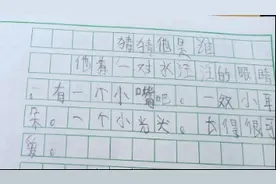 猜猜他是谁
他有一对水汪汪的眼睛
,有一个小嘴吧。一双小耳
朵。一个小光头。长得很可
爱。